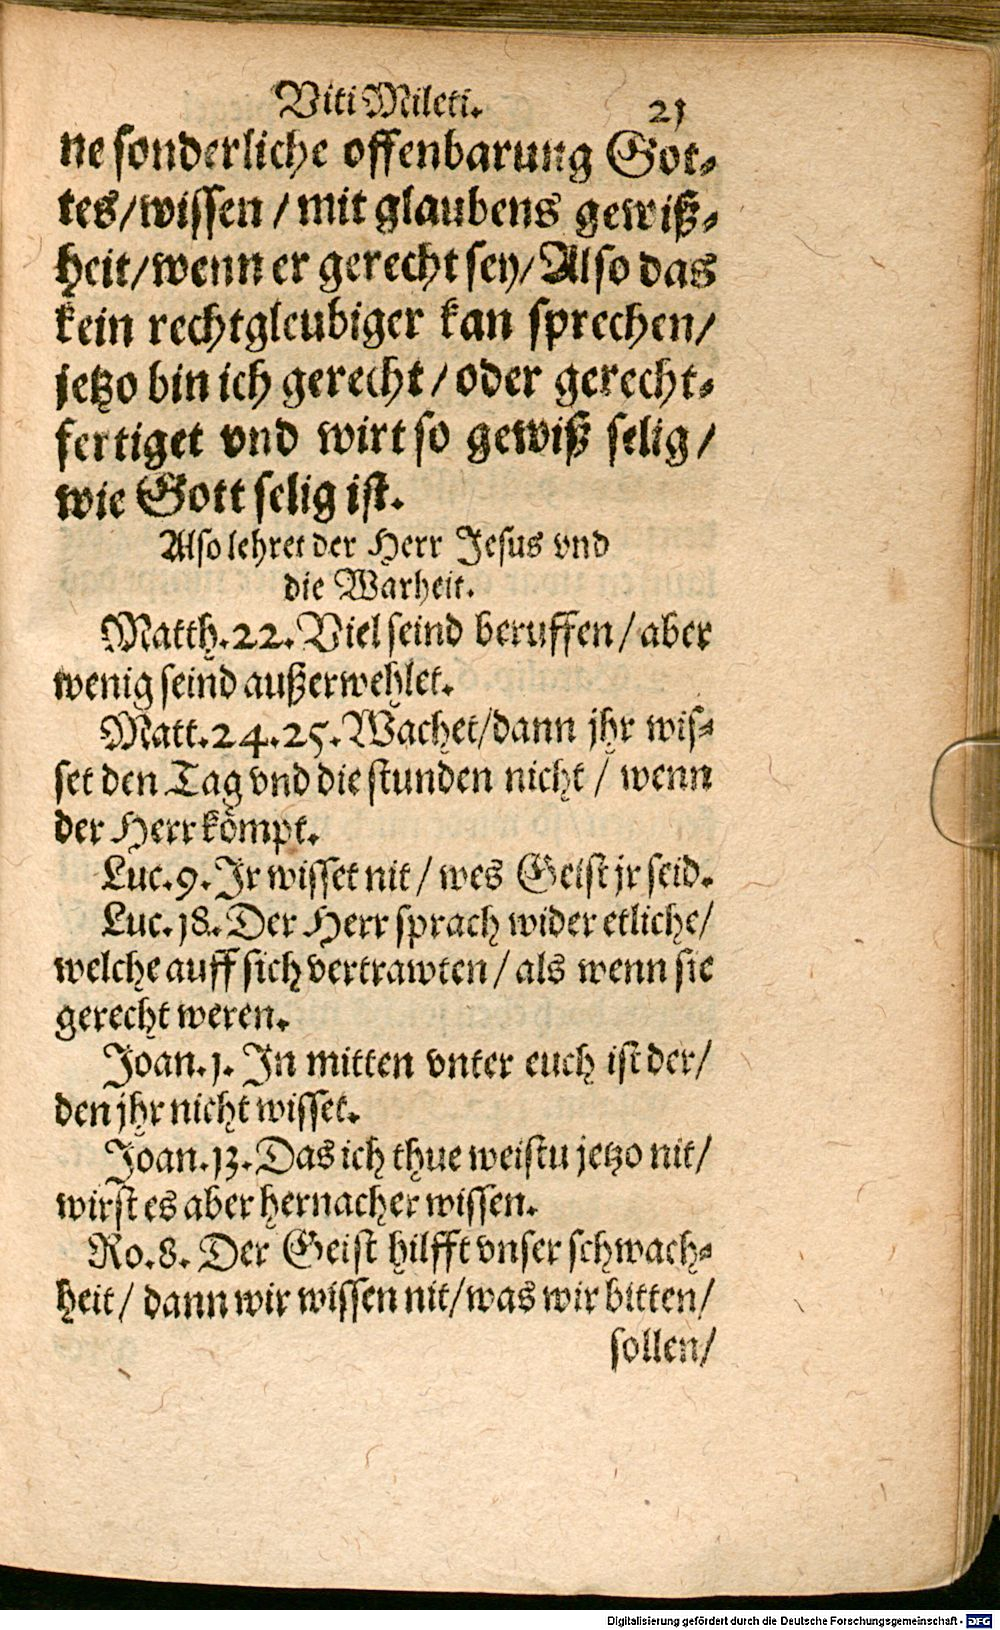 Viti Mileti. 21
ne sonderliche offenbarung Got⸗
tes/wissen / mit glaubens gewiß⸗
heit/wenn er gerecht sey/Also das
kein rechtgleubiger kan sprechen/
jetzo bin ich gerecht / oder gerecht⸗
fertiget vnd wirt so gewiß selig/
wie Gott selig ist.
Also lehret der Herr Jesus vnd
die Warheit.
Matth.22. Viel seind beruffen/aber
wenig seind außerwehlet.
Matt.24.25.Wachet/dann jhr wis⸗
set den Tag vnd die stunden nicht / wenn
der Herr kömpt.
Luc.9.Jr wisset nit/ wes Geist jr seid.
Luc.18.Der Herr sprach wider etliche/
welche auff sich vertrawten/als wenn sie
gerecht weren.
Joan.1. In mitten vnter euch ist der/
den jhr nicht wisset.
Joan.13.Das ich thue weistu jetzo nit/
wirst es aber hernacher wissen.
Ro.8. Der Geist hilfft vnser schwach⸗
heit/ dann wir wissen nit/was wir bitten/
sollen/
Digitalisierung gefördert durch die Deutsche Forschungsgemeinschaft - DFG